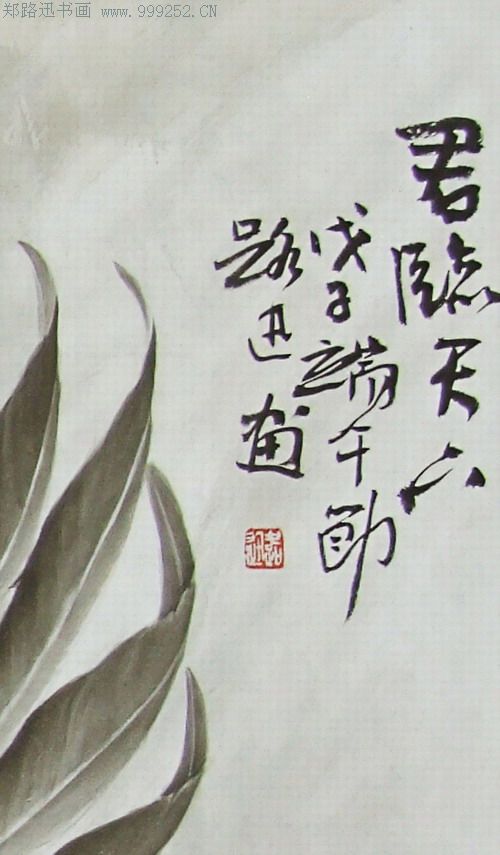 郑路迅书画 www.999252.CN
君臨天下
戊子端午節
路迅畫
路迅